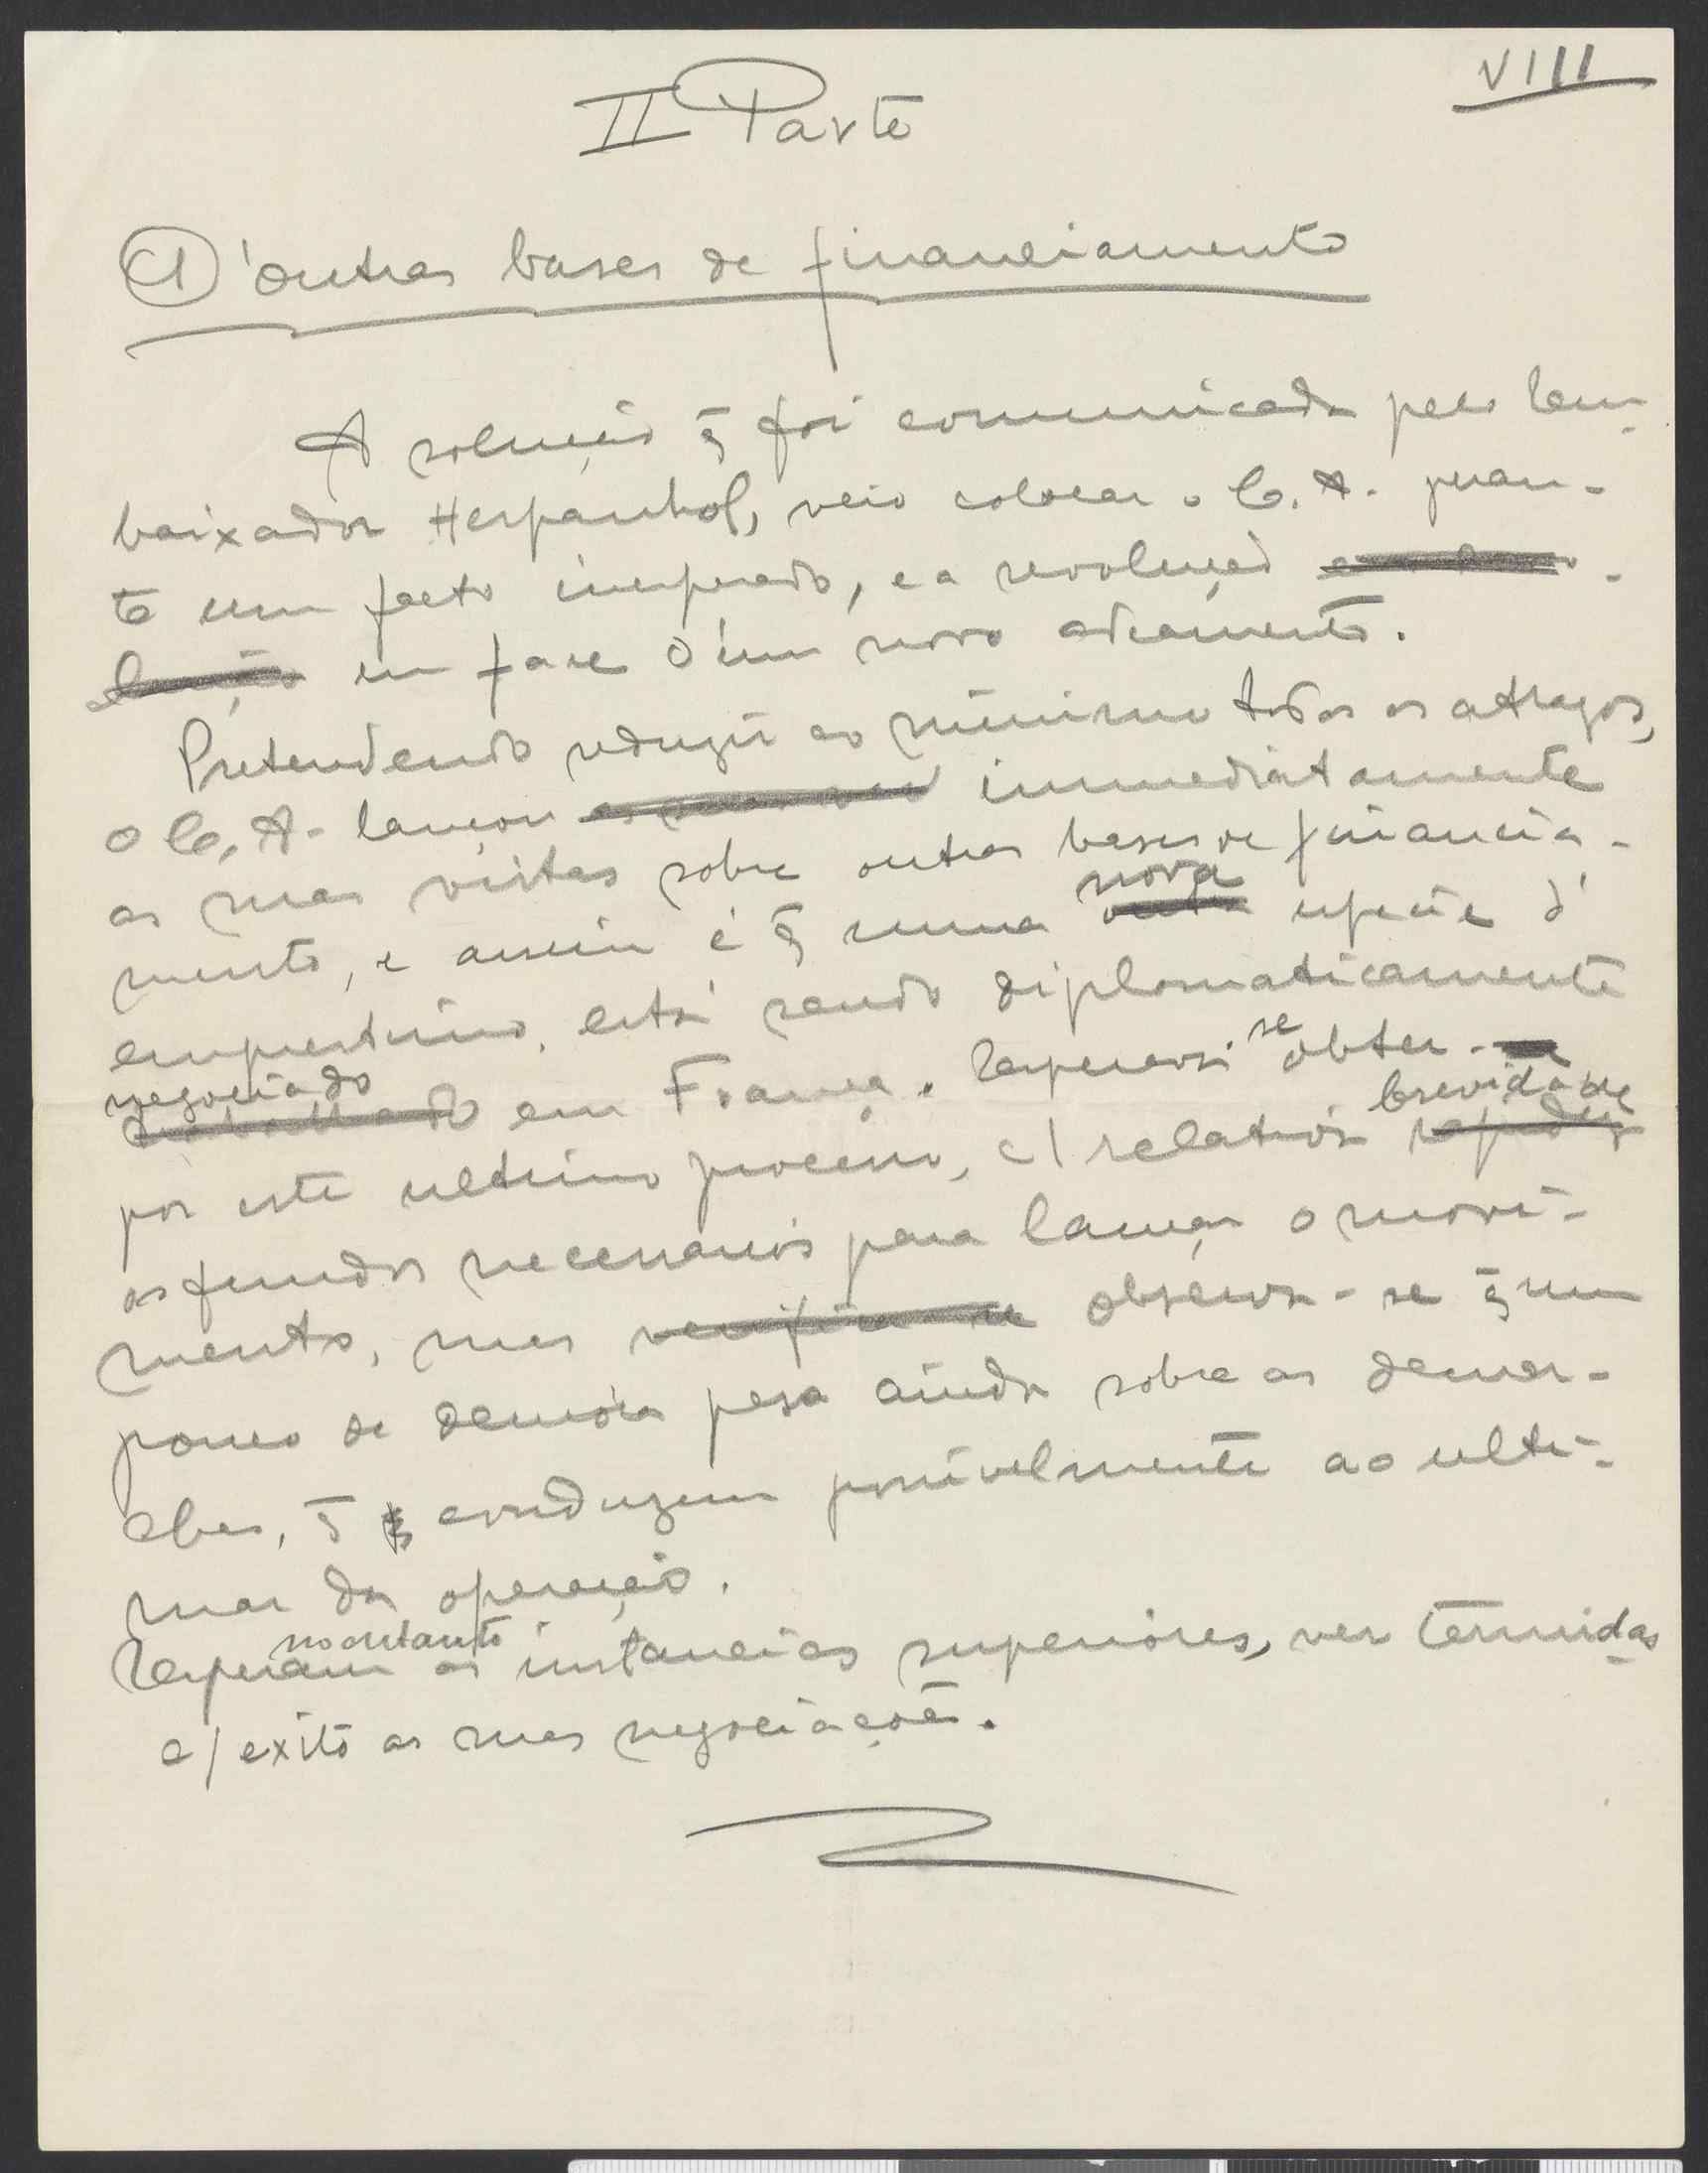 VIII
II Parte
A) Outras bases de financiamento
A solução q̄ foi comunicada pelo Em-
baixador Hespanhol, veio colocar o C. A. peran-
te um facto inesperado, e a revolução
em face d'um novo adiamento.
Pretendendo reduzir ao minimo todos os atrazos,
o C. A. lançou immediatamente
as suas vistas sobre outras bases de financia-
mento, e assim é q̄ numa nova especie d'
emprestimo, está sendo diplomaticamente
negociado em França. Esperava se obter
por este ultimo processo, c/ relativa brevidade
os fundos necessarios para lançar o movi-
mento, mas observa-se q̄ um
pouco de demora pesa ainda sobre as demar-
ches, q̄ conduzem possivelmente ao ulti-
mar da operação.
Esperam no entanto as instancias superiores, ver terminadas
c/ exito as suas negociações.